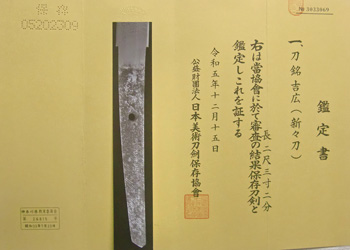 № 3033069
鑑定書
一、刀 銘 吉広（新々刀）
長 二尺三寸二分
右は當協會に於て審査の結果保存刀剣と
鑑定しこれを証する
令和五年十二月十五日
公益財團法人 日本美術刀劍保存協會
保存
05202309